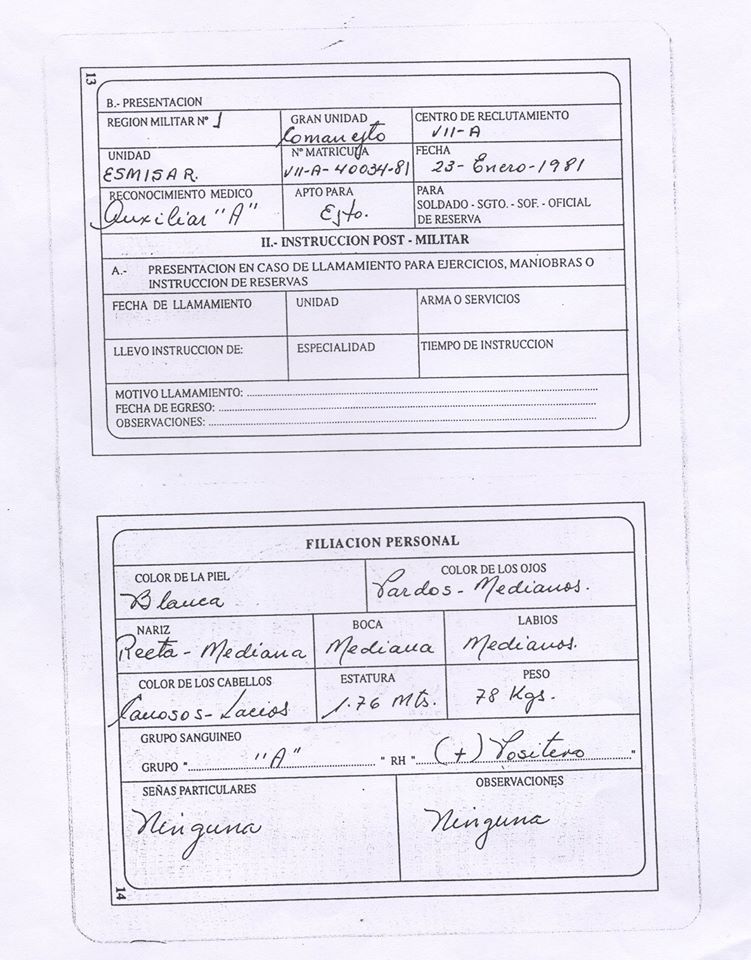 13
B.- PRESENTACION
REGION MILITAR Nº 1
GRAN UNIDAD
Comanejto
CENTRO DE RECLUTAMIENTO
VII-A
UNIDAD
ESMISAR.
Nº MATRICULA
VII-A-40034-81
FECHA
23-Enero-1981
RECONOCIMIENTO MEDICO
Auxiliar "A"
APTO PARA
Ejto.
PARA
SOLDADO - SGTO. - SOF. - OFICIAL
DE RESERVA
II.- INSTRUCCION POST - MILITAR
A.- PRESENTACION EN CASO DE LLAMAMIENTO PARA EJERCICIOS, MANIOBRAS O
INSTRUCCION DE RESERVAS
FECHA DE LLAMAMIENTO
UNIDAD
ARMA O SERVICIOS
LLEVO INSTRUCCION DE:
ESPECIALIDAD
TIEMPO DE INSTRUCCION
MOTIVO LLAMAMIENTO:
FECHA DE EGRESO:
OBSERVACIONES:
FILIACION PERSONAL
COLOR DE LA PIEL
Blanca
COLOR DE LOS OJOS
Pardos - Medianos.
NARIZ
Recta - Mediana
BOCA
Mediana
LABIOS
Medianos.
COLOR DE LOS CABELLOS
Canosos - Lacios
ESTATURA
1.76 Mts.
PESO
78 Kgs.
GRUPO SANGUINEO
GRUPO " "A" " RH " (+) Positivo "
SEÑAS PARTICULARES
Ninguna
OBSERVACIONES
Ninguna
14